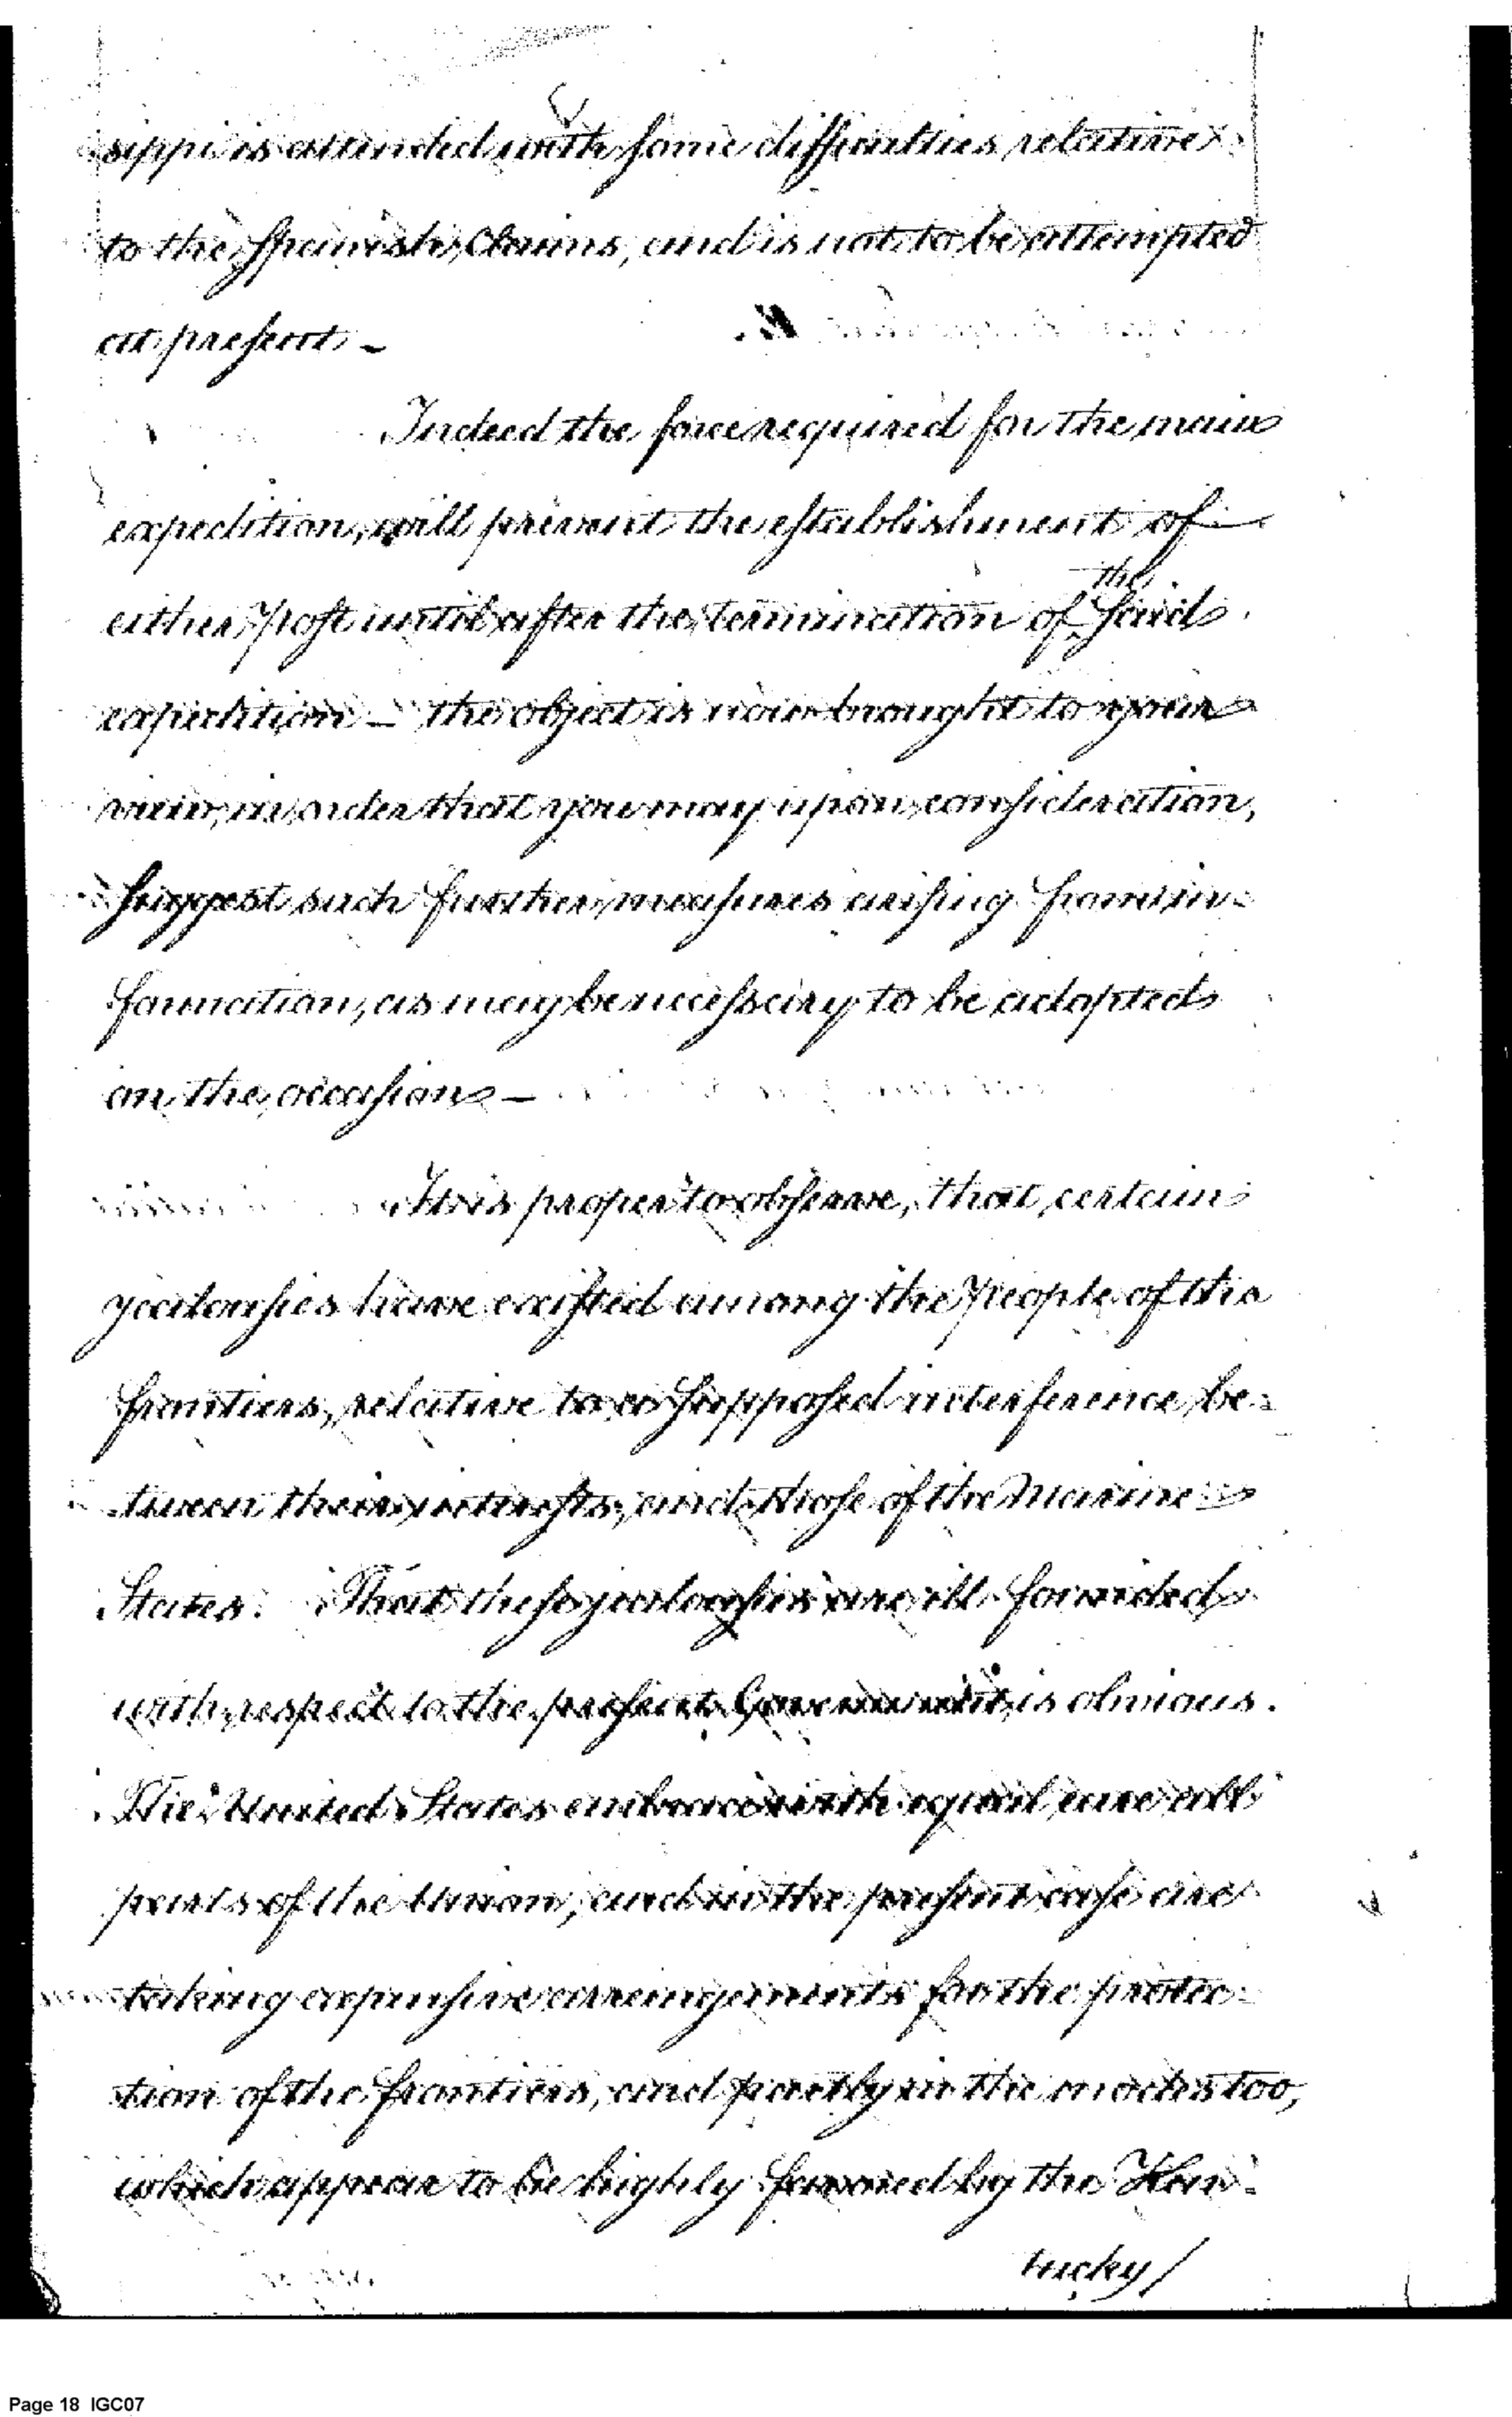 sippi is attended with some difficulties relative
to the Spanish Claims, and is not to be attempted
at present. –
Indeed the force required for the main
expedition, will prevent the establishment of
either post until after the termination of the said
expedition – the object is now brought to your
view, in order that you may upon consideration,
suggest such further measures arising from in-
formation, as may be necessary to be adopted
on the occasion –
It is proper to observe, that certain
jealousies have existed among the people of the
frontiers, relative to a supposed interference be-
tween their interests, and those of the Marine
States. That these jealousies are ill founded
with respect to the present Government, is obvious.
The United States embrace with equal care all
parts of the Union, and in the present case are
taking expensive arrangements for the protec-
tion of the frontiers, and partly in the modes too,
which appear to be highly favored by the Ken-
tucky/
Page 18 IGC07